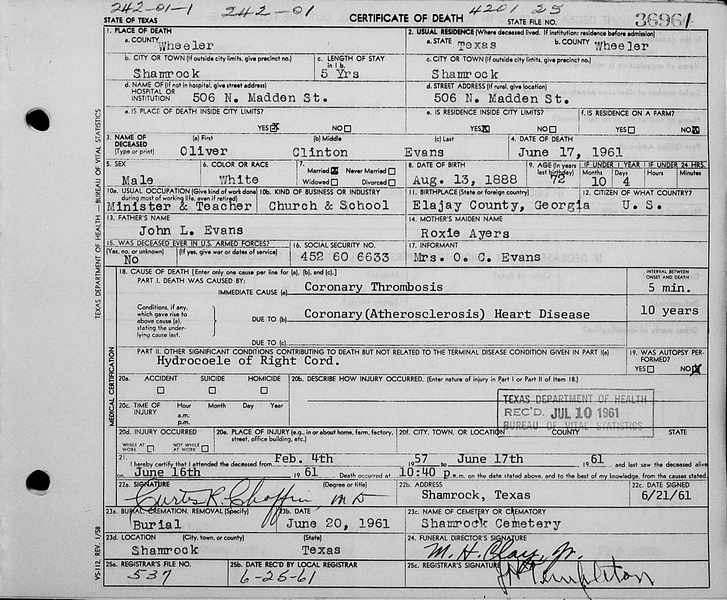 242-01-1 242-01 4201 25
STATE OF TEXAS CERTIFICATE OF DEATH STATE FILE NO. 36961
1. PLACE OF DEATH 2. USUAL RESIDENCE (Where deceased lived. If institution: residence before admission)
a. COUNTY Wheeler a. STATE Texas b. COUNTY Wheeler
b. CITY OR TOWN (If outside city limits, give precinct no.) c. LENGTH OF STAY in 1 b. c. CITY OR TOWN (If outside city limits, give precinct no.)
Shamrock 5 Yrs Shamrock
d. NAME OF (If not in hospital, give street address) HOSPITAL OR INSTITUTION d. STREET ADDRESS (If rural, give location)
506 N. Madden St. 506 N. Madden St.
e. IS PLACE OF DEATH INSIDE CITY LIMITS? e. IS RESIDENCE INSIDE CITY LIMITS? f. IS RESIDENCE ON A FARM?
YES NO YES NO YES NO
3. NAME OF DECEASED (Type or print) (a) First (b) Middle (c) Last 4. DATE OF DEATH
Oliver Clinton Evans June 17, 1961
5. SEX 6. COLOR OR RACE 7. Married Never Married Widowed Divorced 8. DATE OF BIRTH 9. AGE (In years last birthday) IF UNDER 1 YEAR IF UNDER 24 HRS.
Months Days Hours Minutes
Male White Aug. 13, 1888 72 10 4
10a. USUAL OCCUPATION (Give kind of work done during most of working life, even if retired) 10b. KIND OF BUSINESS OR INDUSTRY 11. BIRTHPLACE (State or foreign country) 12. CITIZEN OF WHAT COUNTRY?
Minister & Teacher Church & School Elajay County, Georgia U. S.
13. FATHER'S NAME 14. MOTHER'S MAIDEN NAME
John L. Evans Roxie Ayers
15. WAS DECEASED EVER IN U.S. ARMED FORCES? 16. SOCIAL SECURITY NO. 17. INFORMANT
(Yes, no, or unknown) (If yes, give war or dates of service)
No 452 60 6633 Mrs. O. C. Evans
18. CAUSE OF DEATH [Enter only one cause per line for (a), (b), and (c).] INTERVAL BETWEEN ONSET AND DEATH
PART I. DEATH WAS CAUSED BY:
IMMEDIATE CAUSE (a) Coronary Thrombosis 5 min.
Conditions, if any, which gave rise to above cause (a), stating the underlying cause last.
DUE TO (b) Coronary(Atherosclerosis) Heart Disease 10 years
DUE TO (c)
PART II. OTHER SIGNIFICANT CONDITIONS CONTRIBUTING TO DEATH BUT NOT RELATED TO THE TERMINAL DISEASE CONDITION GIVEN IN PART I(a) 19. WAS AUTOPSY PERFORMED?
Hydrocoele of Right Cord. YES NO
20a. ACCIDENT SUICIDE HOMICIDE 20b. DESCRIBE HOW INJURY OCCURRED. (Enter nature of injury in Part I or Part II of item 18.)
20c. TIME OF INJURY Hour Month Day Year
a.m.
p.m.
TEXAS DEPARTMENT OF HEALTH
REC'D. JUL 10 1961
BUREAU OF VITAL STATISTICS
20d. INJURY OCCURRED 20e. PLACE OF INJURY (e.g., in or about home, farm, factory, street, office building, etc.) 20f. CITY, TOWN, OR LOCATION COUNTY STATE
WHILE AT WORK NOT WHILE AT WORK
21. I hereby certify that I attended the deceased from Feb. 4th 1957 June 17th 1961 and last saw the deceased alive
on June 16th 1961 Death occurred at 10:40 p m. on the date stated above, and to the best of my knowledge, from the causes stated.
22a. SIGNATURE (Degree or title) 22b. ADDRESS 22c. DATE SIGNED
Curtis R. Chaffin MD Shamrock, Texas 6/21/61
23a. BURIAL, CREMATION, REMOVAL (Specify) 23b. DATE 23c. NAME OF CEMETERY OR CREMATORY
Burial June 20, 1961 Shamrock Cemetery
23d. LOCATION (City, town, or county) (State) 24. FUNERAL DIRECTOR'S SIGNATURE
Shamrock Texas M. H. Clay, Jr.
25a. REGISTRAR'S FILE NO. 25b. DATE REC'D BY LOCAL REGISTRAR 25c. REGISTRAR'S SIGNATURE
537 6-25-61 Templeton
TEXAS DEPARTMENT OF HEALTH BUREAU OF VITAL STATISTICS
MEDICAL CERTIFICATION
VS-112 REV. 1/58